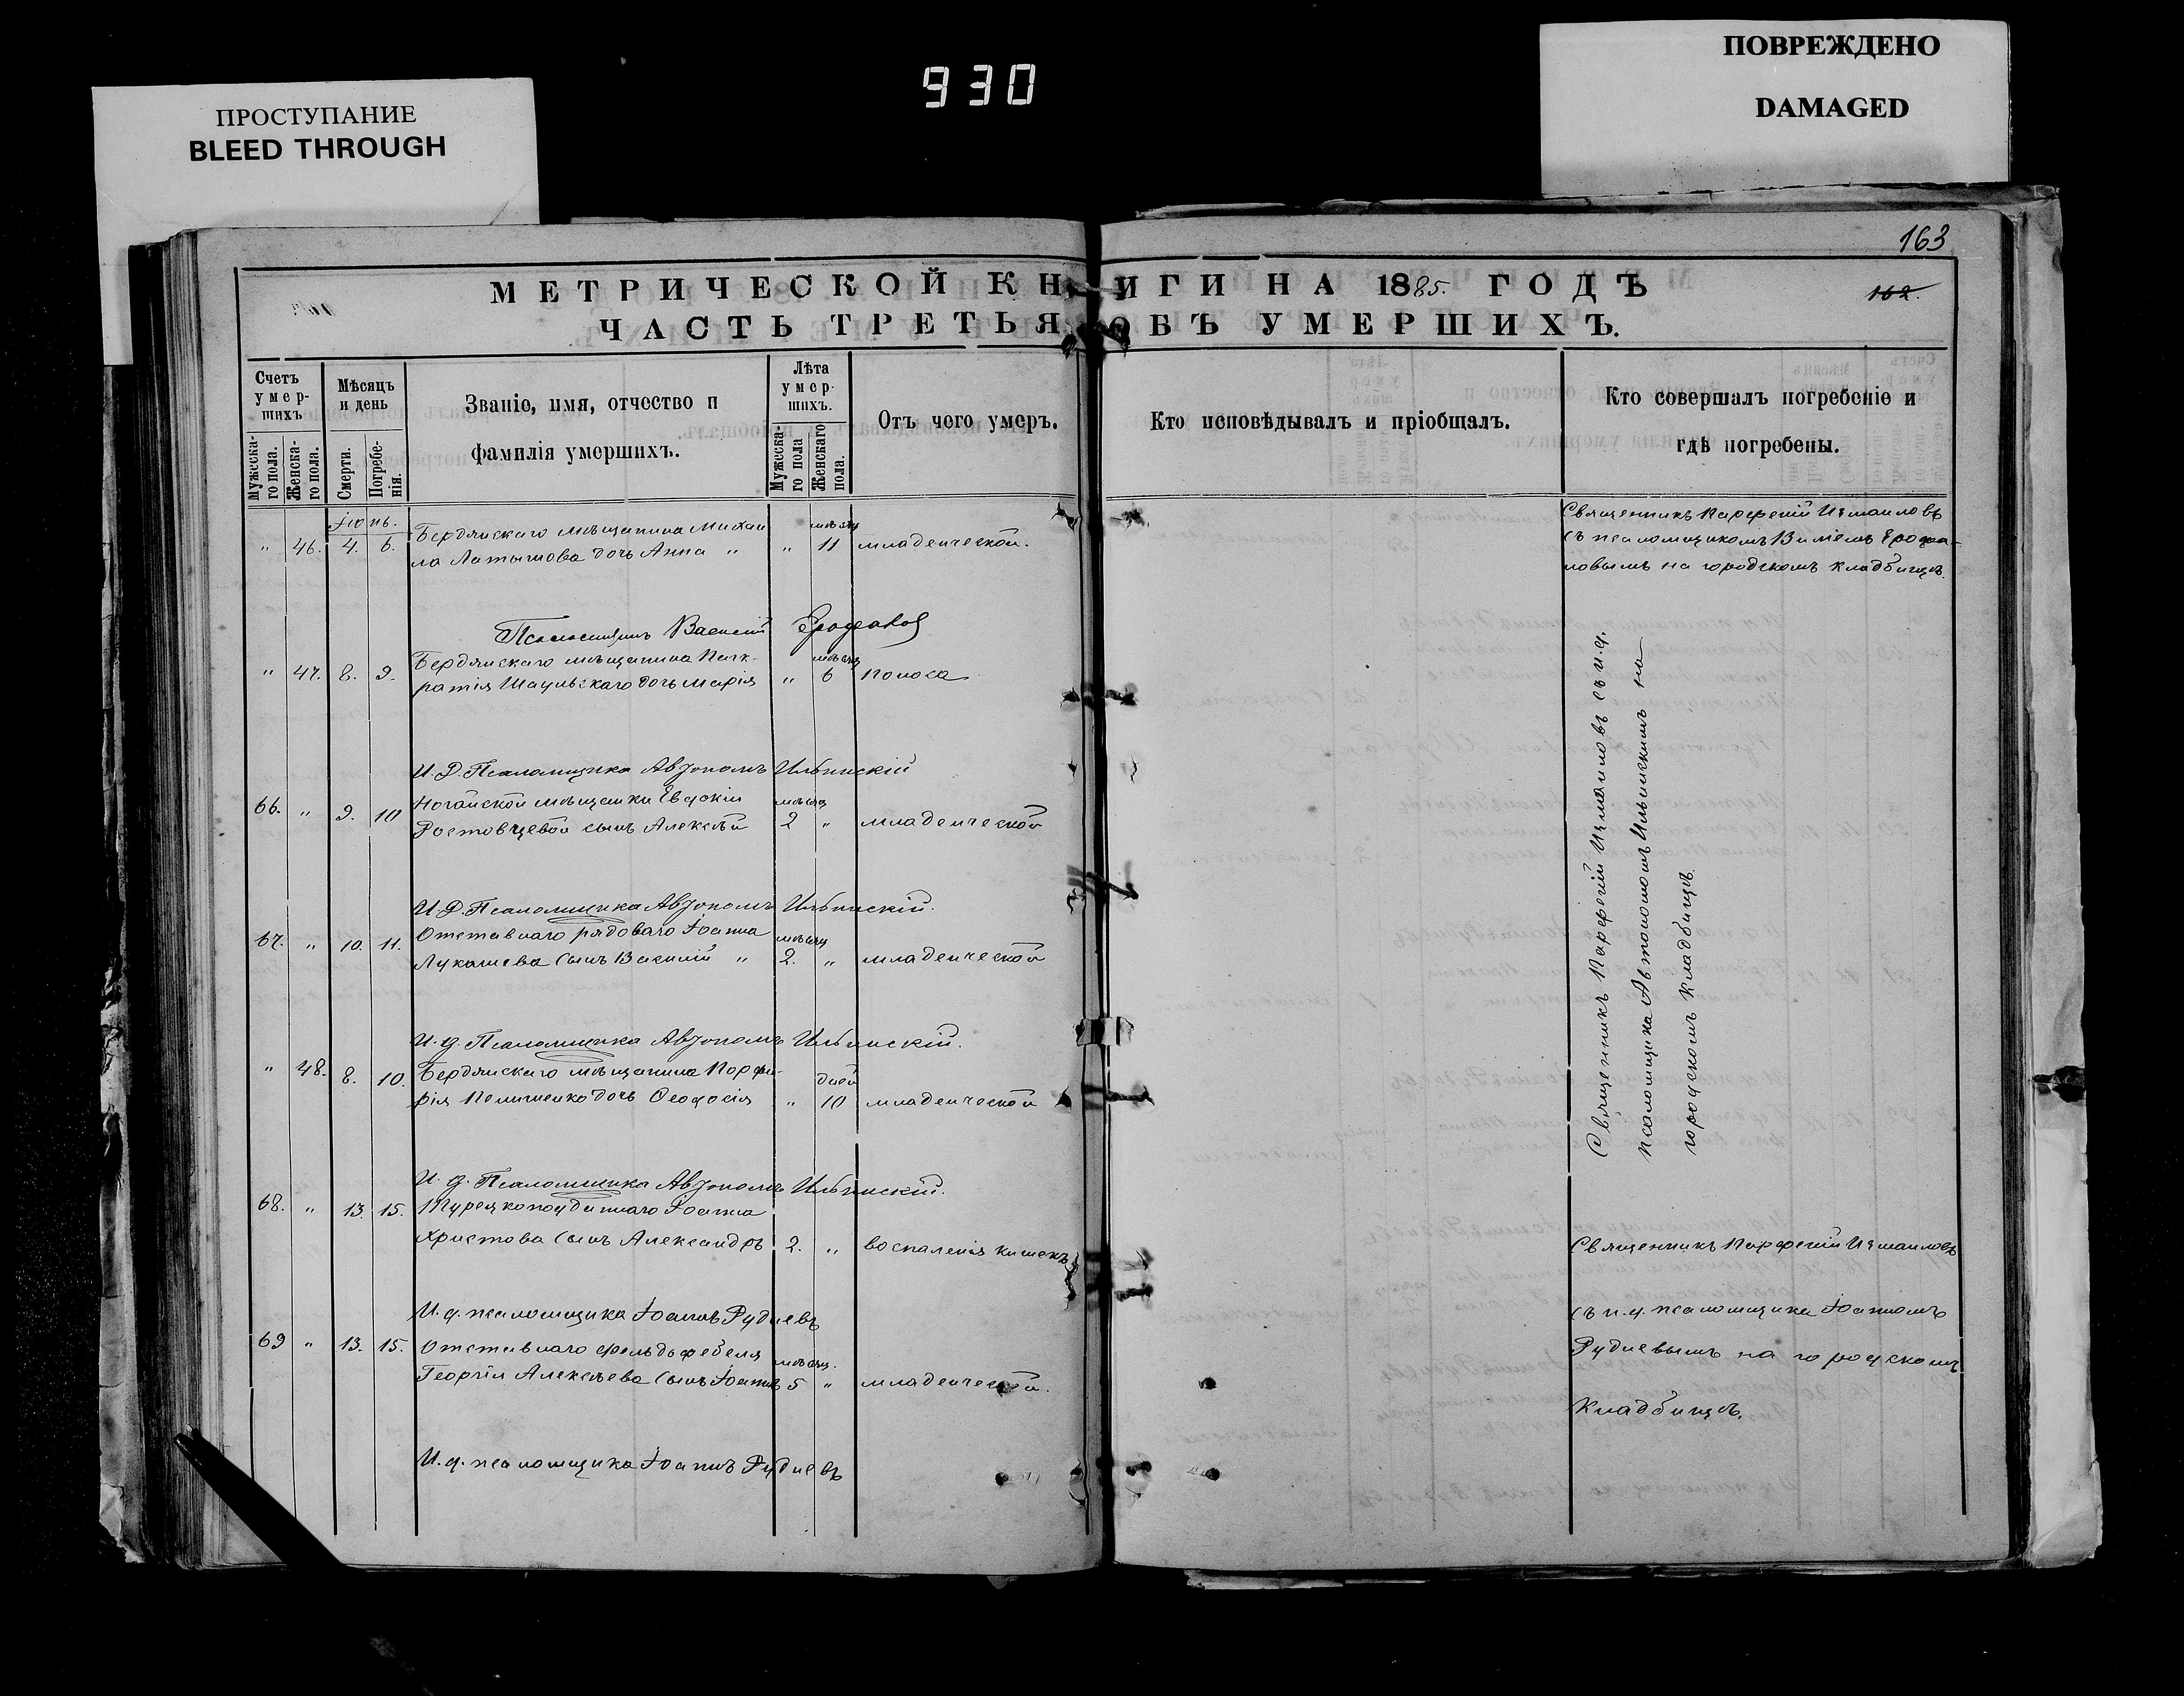 930
ПРОСТУПАНИЕ
BLEED THROUGH
ПОВРЕЖДЕНО
DAMAGED
163
МЕТРИЧЕСКОЙ КНИГИ НА 1885. ГОДЪ
162.
ЧАСТЬ ТРЕТЬЯ ОБЪ УМЕРШИХЪ.
Счетъ умер-шихъ
Мужеска-го пола.
Женска-го пола.
Мѣсяцъ и день
Смерти.
Погребе-нія.
Званіе, имя, отчество и
фамилія умершихъ.
Лѣта умер-шихъ.
Мужеска-го пола
Женскаго пола.
Отъ чего умеръ.
Кто исповѣдывалъ и пріобщалъ.
Кто совершалъ погребеніе и
гдѣ погребены.
Іюнь.
Бердянскаго мѣщанина Михаи
мѣсяц
Священникъ Парфеній Измаиловъ
" 46. 4. 6. ла Латышова дочь Анна " " 11 младенческой.
съ псаломщикомъ
ловымъ на городскомъ кладбищѣ.
Псаломщикъ Василій
Бердянскаго мѣщанина Панк-
мѣсяц
" 47. 8. 9. ратія дочь Марія " 6 поноса
И.Д. Псаломщика Автономъ Ильинскій
Ногайской мѣщанки Евдокіи
мѣсяц
66. " 9. 10 Ростовцевой сынъ Алексѣй 2 " младенческой
И.Д. Псаломщика Автономъ Ильинскій.
Отставнаго рядоваго Іоанна
мѣсяц
67. " 10. 11. Лукашева сынъ Василій " 2. " младенческой
И.д. Псаломщика Автономъ Ильинскій.
Бердянскаго мѣщанина Порфи-
дней
" 48. 8. 10. рія дочь Ѳеодосія " 10 младенческой
Священникъ Парфеній Измаиловъ съ и.д.
псаломщика Автономомъ Ильинскимъ на
городскомъ кладбищѣ.
И.д. Псаломщика Автономъ Ильинскій.
68. " 13. 15. Турецкоподданнаго Іоанна
Христова сынъ Александръ 2. " воспаленія кишекъ
Священникъ Парфеній Измаиловъ
И.д. псаломщика Іоаннъ Рудневъ
съ и.д. псаломщика Іоанномъ
69 " 13. 15. Отставнаго фельдфебеля
мѣсяц.
Рудневымъ на городскомъ
Георгія Алексѣева сынъ Іоаннъ 5 " младенческой.
кладбищѣ.
И.д. псаломщика Іоаннъ Рудневъ